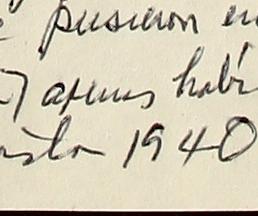 pusieron en
apenas habí
1940